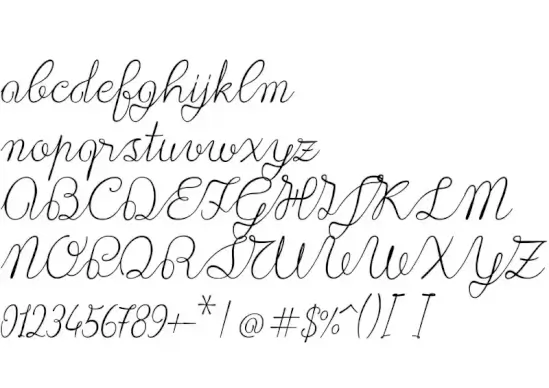 abcdefghijklm
nopqrstuvwxyz
ABCDEFGHIJKLM
NOPQRSTUVWXYZ
0123456789+-*/|@#$%^()[ ]